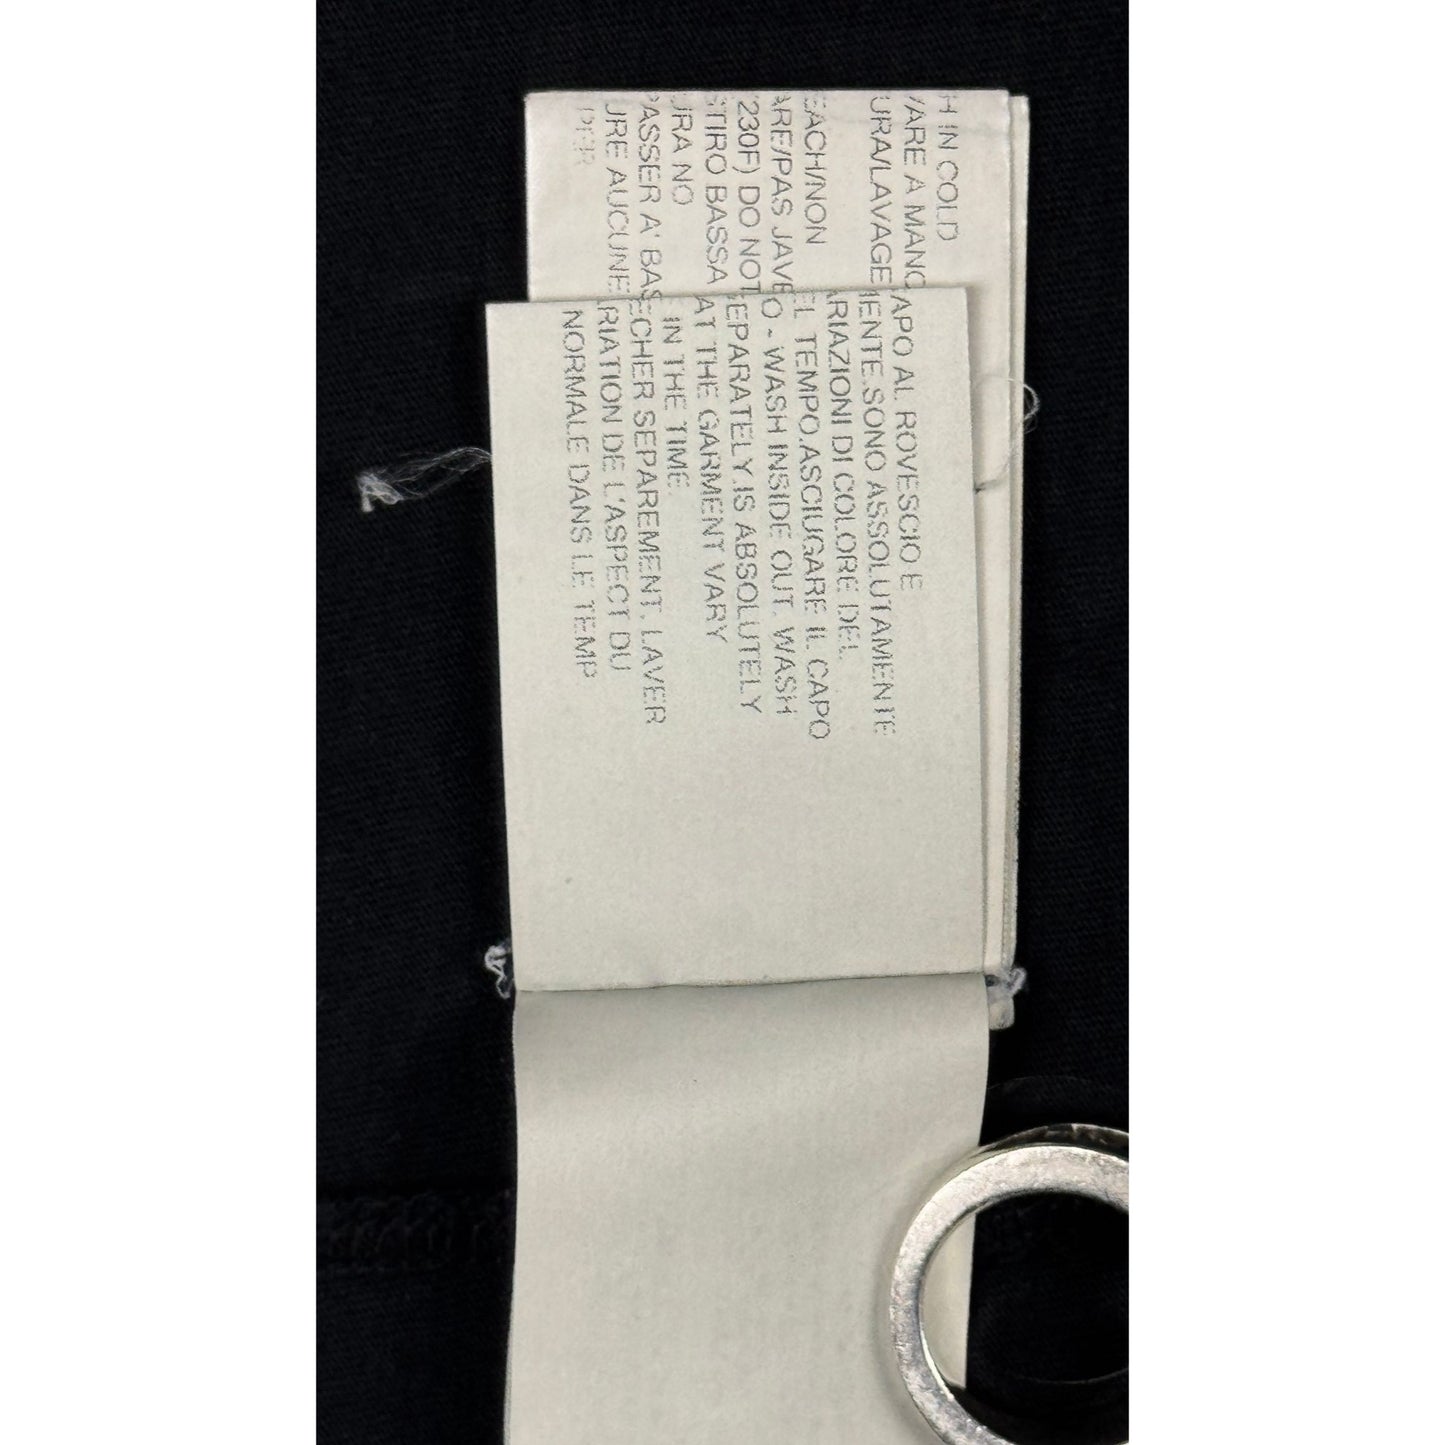 H IN COLD
VARE A MANO
URA/LAVAGE
EACH/NON
ARE/PAS JAVE
230F) DO NOT
STIRO BASSA
URA NO
PASSER A' BAS
URE AUCUNE
APO AL ROVESCIO E
MENTE.SONO ASSOLUTAMENTE
ARIAZIONI DI COLORE DEL
EL TEMPO.ASCIUGARE IL CAPO
O - WASH INSIDE OUT. WASH
EPARATELY.IS ABSOLUTELY
AT THE GARMENT VARY
IN THE TIME.
ECHER SEPAREMENT. LAVER
RIATION DE L'ASPECT DU
NORMALE DANS LE TEMP